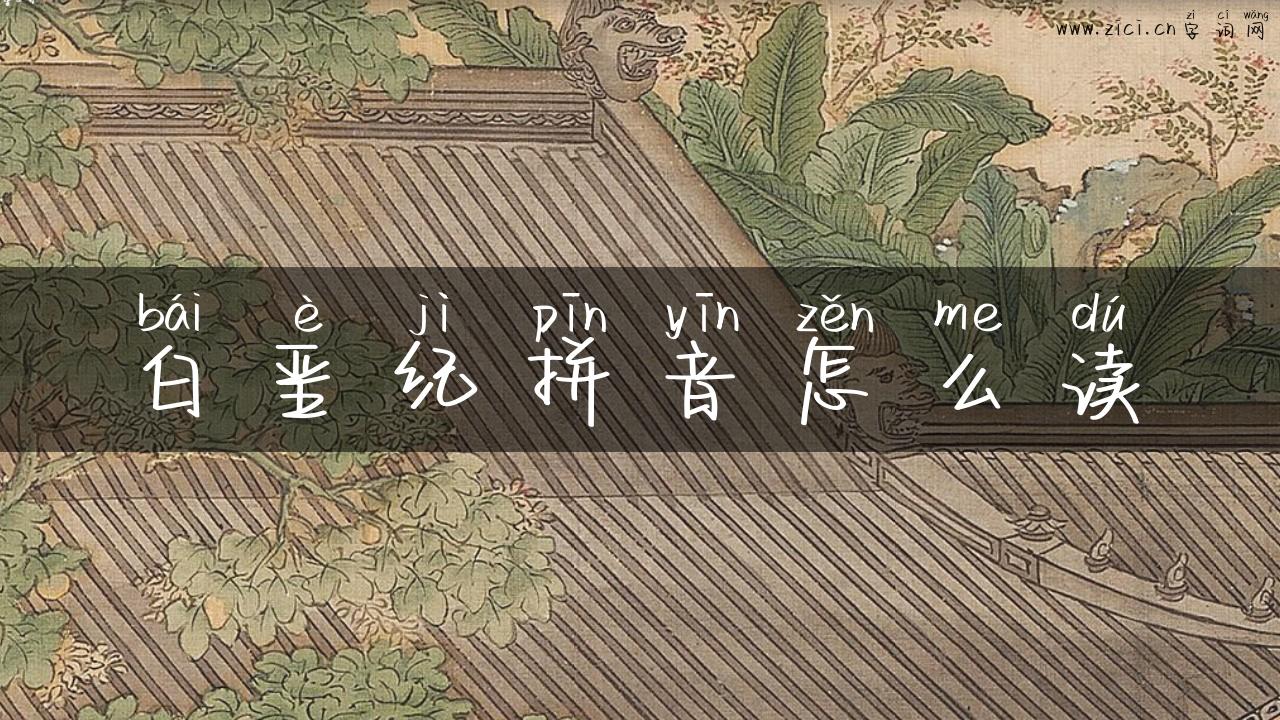 zì cí wǎng
www.zici.cn 字词网
bái è jì pīn yīn zěn me dú
白垩纪拼音怎么读